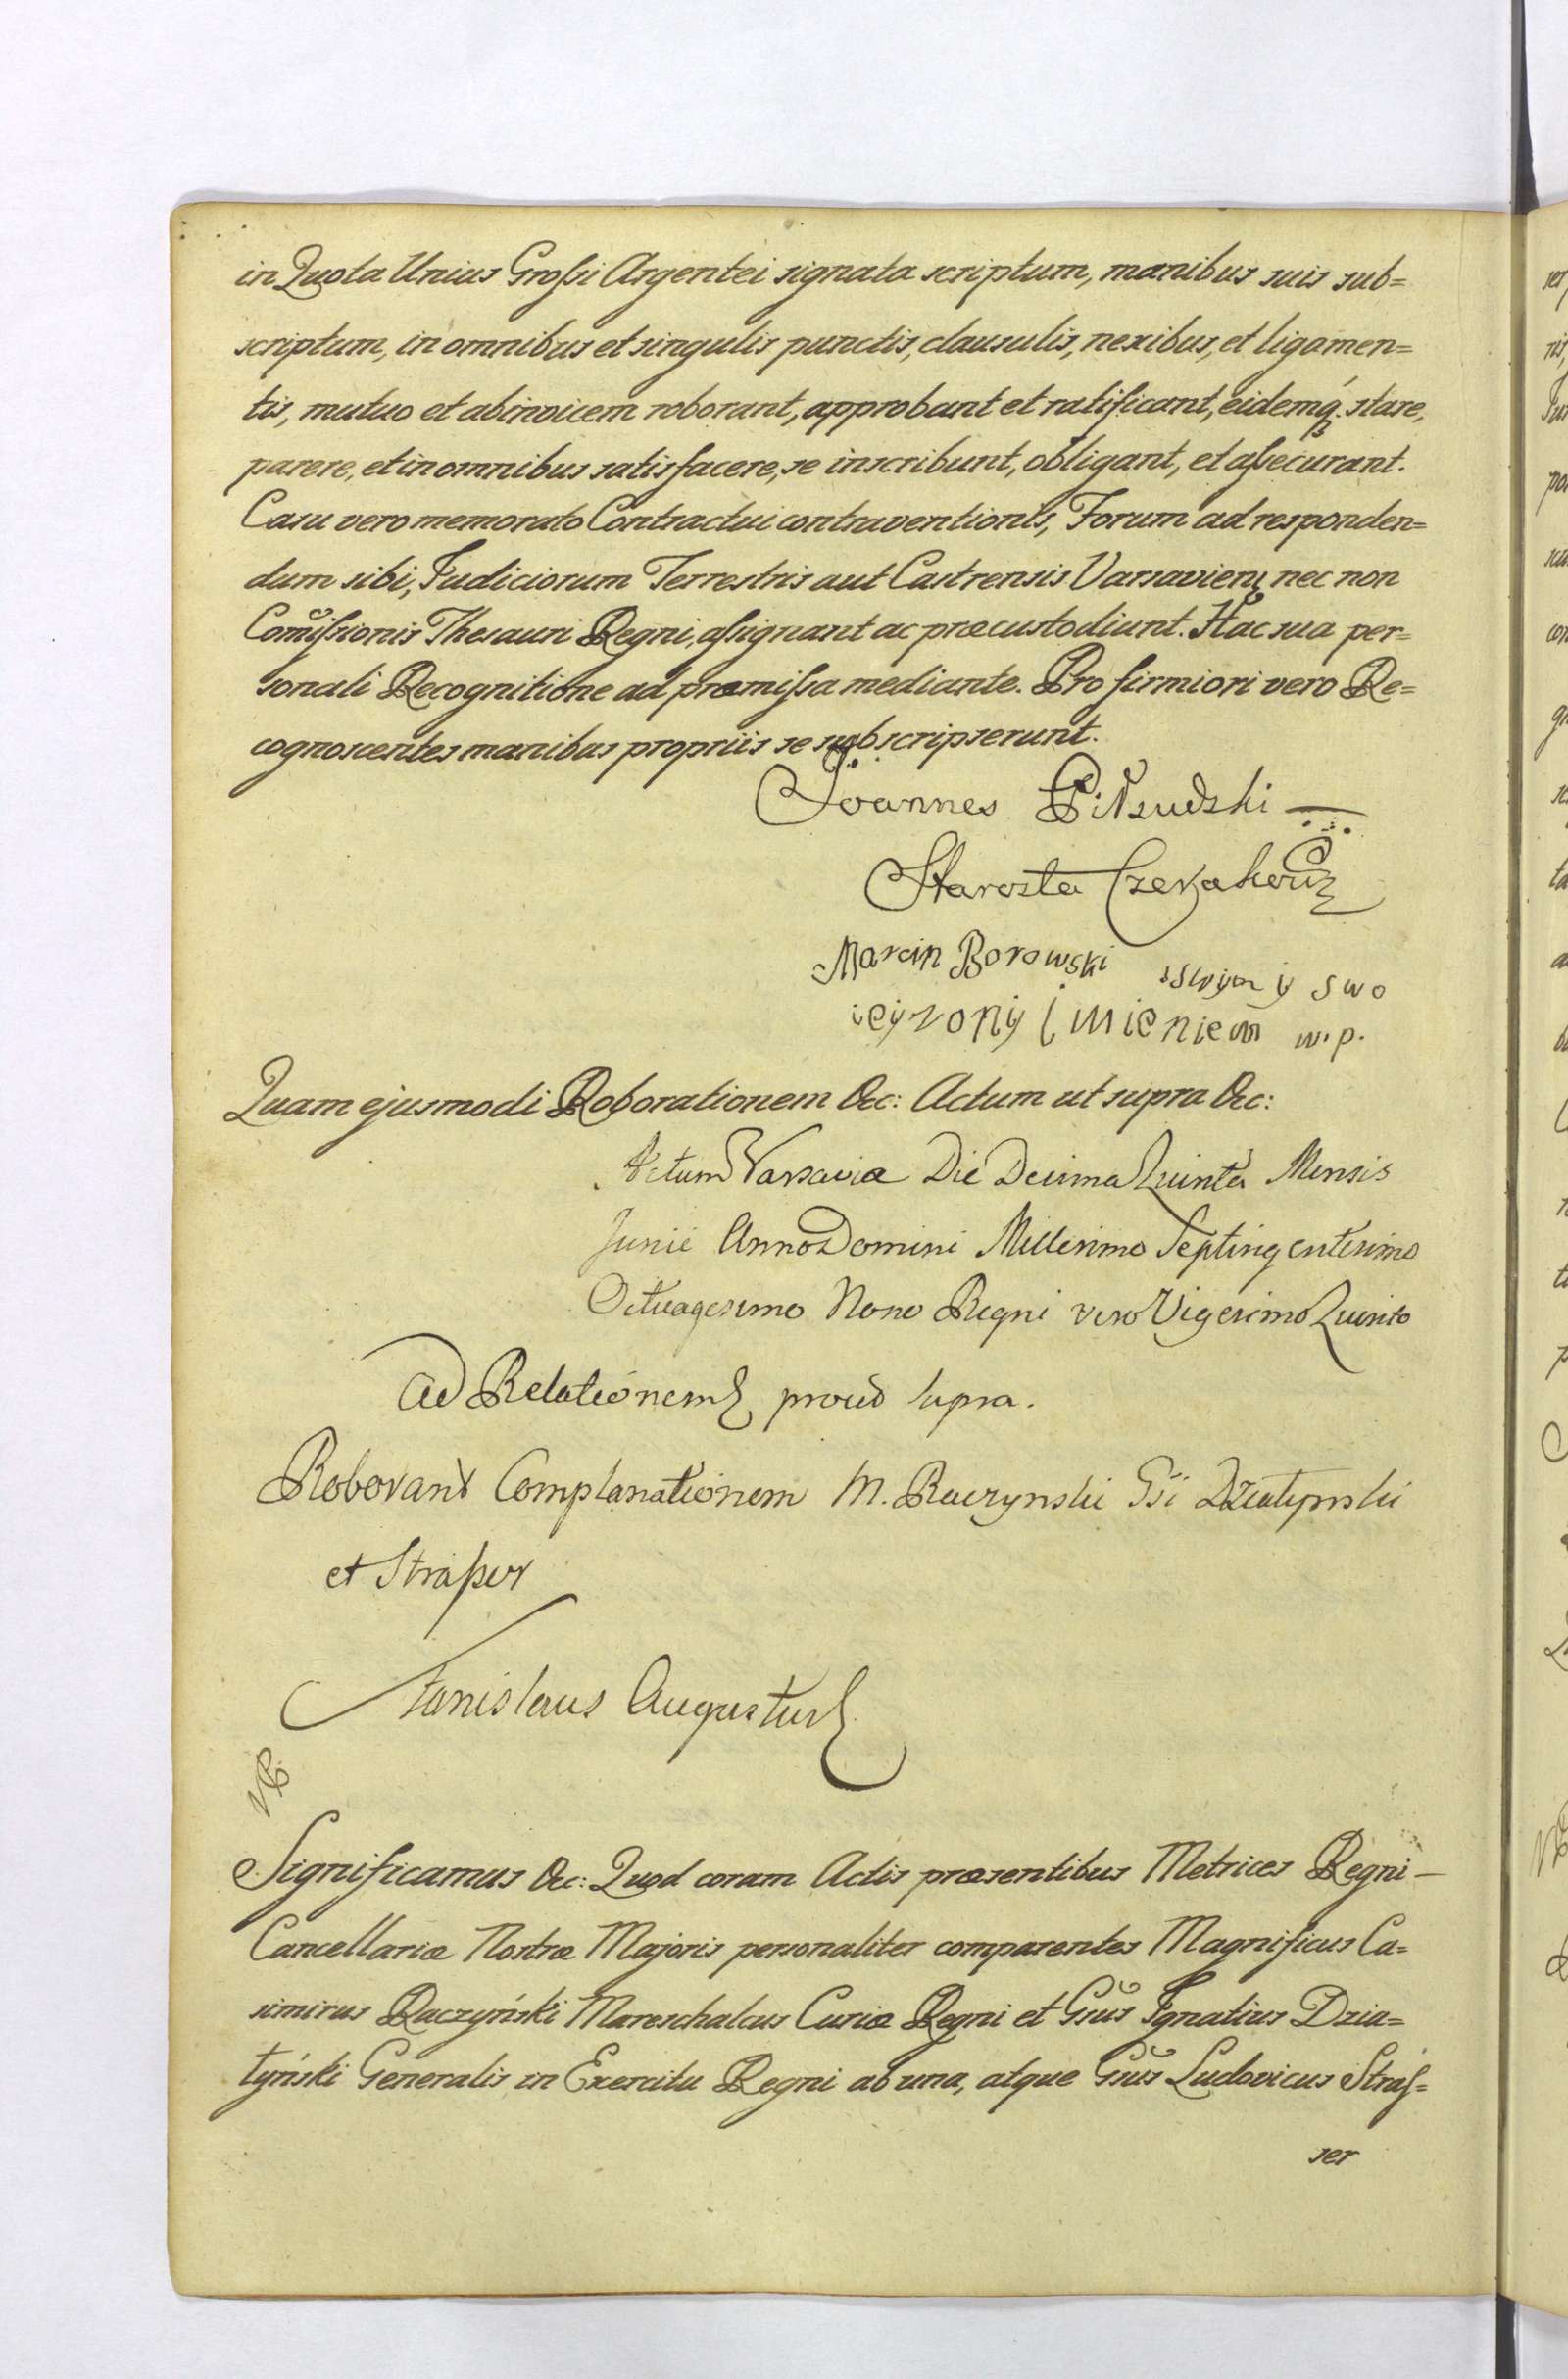 in Quota Unius Großi Argentei signata scriptum, manibus suis sub=
scriptum, in omnibus et singulis punctis, clausulis, nexibus, et ligamen=
tis, mutuo et abinvicem roborant, approbant et ratificant, eidemq́. stare,
parere, et in omnibus satisfacere, se inscribunt, obligant, et aßecurant.
Casu vero memorato Contractui contraventionis, Forum ad responden=
dum sibi, Judiciorum Terrestris aut Castrensis Varsavien, nec non
Comißionis Thesauri Regni, aßignant ac præcustodiunt. Hac sua per=
sonali Recognitione ad præmißa mediante. Pro firmiori vero Re=
cognoscentes manibus propriis se subscripserunt.
Joannes Piłsudzki
Starosta
Marcin Borowski swym y swo
ieÿ zonÿ imieniem m.p.
Quam ejusmodi Roborationem &c: Actum ut supra &c:
Actum Varsaviæ Die Decima Quinta Mensis
Junii Anno Domini Millesimo Septingentesimo
Octuagesimo Nono Regni vero Vigesimo Quinto
Ad Relationem prout supra.
Roborant Complanationem M. Raczynski Gsi Działynski
et Straßer
Stanislaus Augustus
Significamus &c: Quod coram Actis præsentibus Metrices Regni —
Cancellariæ Nostræ Majoris personaliter comparentes Magnificus Ca=
simirus Raczyński Mareschalcus Curiæ Regni et Gsus Ignatius Dzia=
łyński Generalis in Exercitu Regni ab una, atque Gsus Ludovicus Straſ=
ser